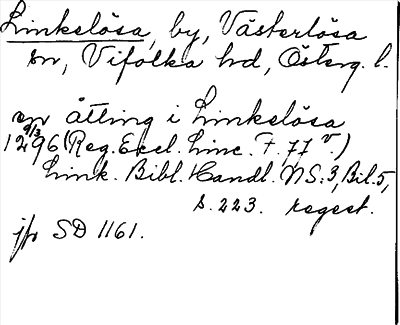 Linkelösa, by, Västerlösa
sn, Vifolka hd, Österg. l.
en åtting i Linkelösa
9/3
1296 (Reg. Eccl. Linc. F. 77 v.)
Link. Bibl. Handl. NS: 3, Bil. 5,
s. 223. regest.
jfr SD 1161.